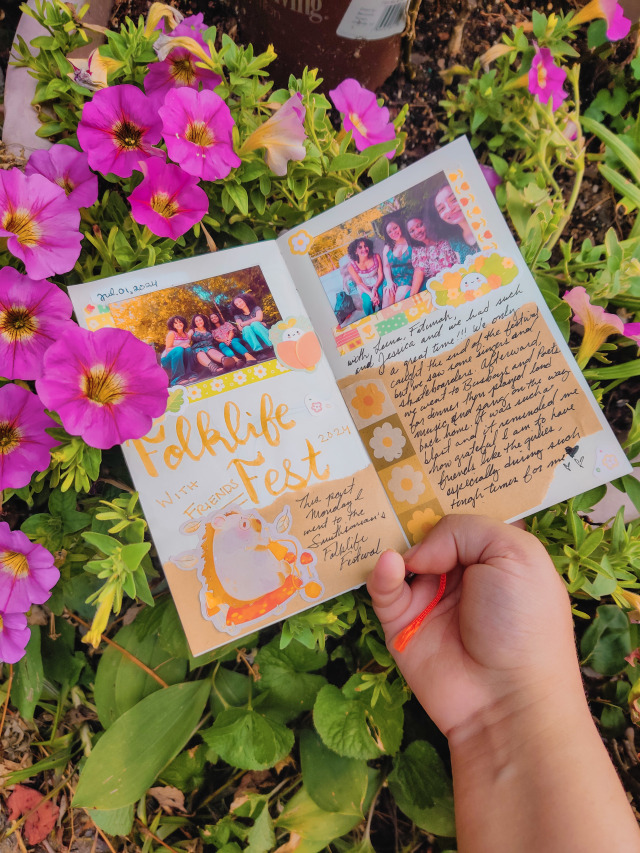 Jul. 01, 2024
Folklife
Fest 2024
WITH
FRIENDS
This past
Monday I
went to the
Smithsonian's
Folklife
Festival
with Luna, Fatimah,
and Jessica and we had such
a great time!!! We only
caught the end of the festival
but we saw some singers and
skateboarders. Afterward,
we went to Busboys and Poets
for dinner then played loud
music and sang on the way
back home. It was such a
blast and it reminded me
how grateful I am to have
friends like the girlies.
especially during such
tough times for me